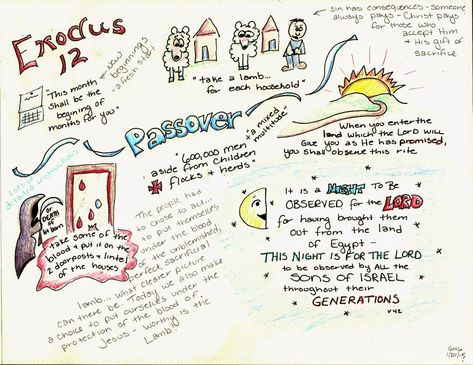 Exodus
12
New
beginnings
a fresh start
"This month
shall be the
begining of
months for you"
"take a lamb...
for each household"
sin has consequences - Someone
always pays - Christ pays
for those who
accept Him
& His gift of
sacrifice
Passover
"600,000 men
aside from children
flocks & herds"
"a mixed
multitude"
When you enter the
land which the LORD will
Give you as He has promised,
you shall observe this rite
detailed instructions
DEATH
take some of the
blood & put it on the
2 doorposts & lintel
of the houses
The people had
to chose to act...
to put themselves
under the blood
of the unblemished,
perfect, sacrificial
lamb... what clearer picture
can there be. Today we also make
a choice to put ourselves under the
protection of the blood of
Jesus - worthy is the
Lamb!
It is a NIGHT To Be
OBSERVED for the LORD
for having brought them
out from the land
of Egypt -
THIS NIGHT IS FOR THE LORD
to be observed by ALL the
SONS OF ISRAEL
throughout their
GENERATIONS
v 42
GMG
1/20/15